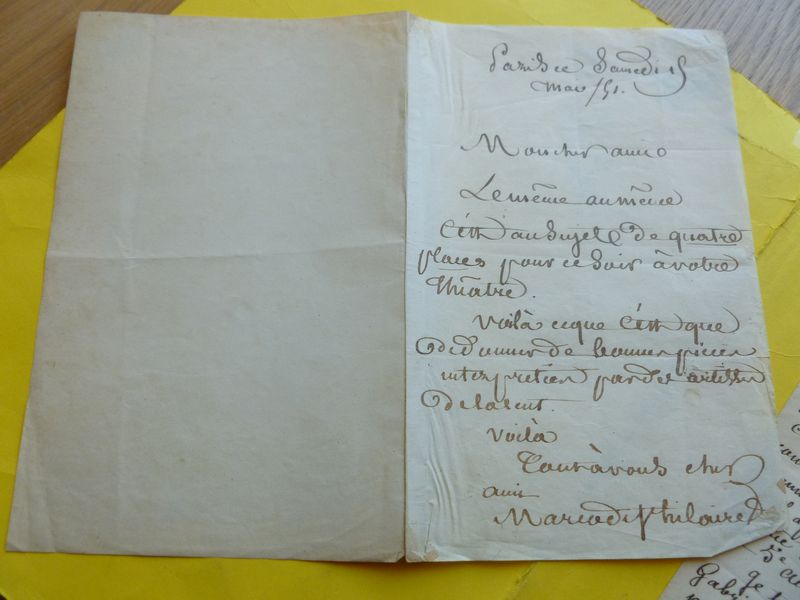 Paris ce Samedi 15
mars /51.
Mon cher ami
Le même au même
C'est au sujet de quatre
places pour ce soir à votre
théâtre.
Voilà ce que c'est que
de donner de bonnes pièces
interprétées par des artistes
de talent.
Voilà
Tout à vous cher
ami
Marco de St hilaire